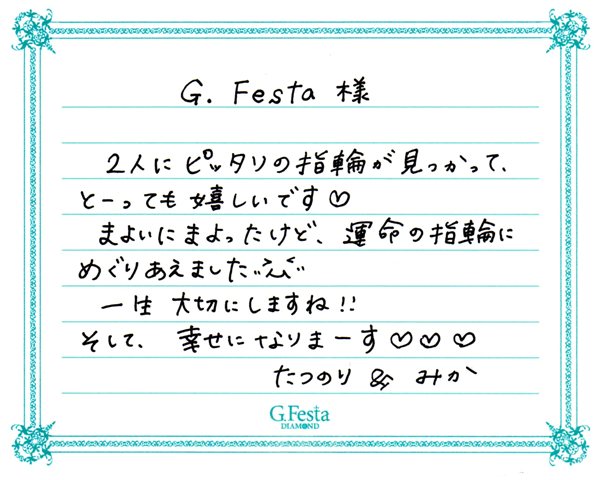 G. Festa 様
2人にピッタリの指輪が見つかって、
とーっても嬉しいです♡
まよいにまよったけど、運命の指輪に
めぐりあえました
一生 大切にしますね!!
そして、幸せになりまーす♡♡♡
たつのり & みか
G.Festa
DIAMOND